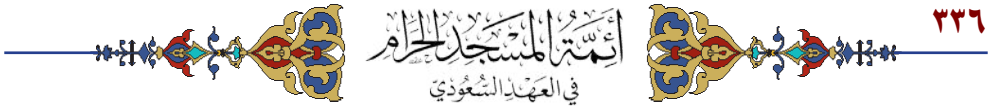 ٣٣٦
أَئِمَّةُ المَسْجِدِ الحَرَامِ
فِي العَهْدِ السُّعُودِيّ